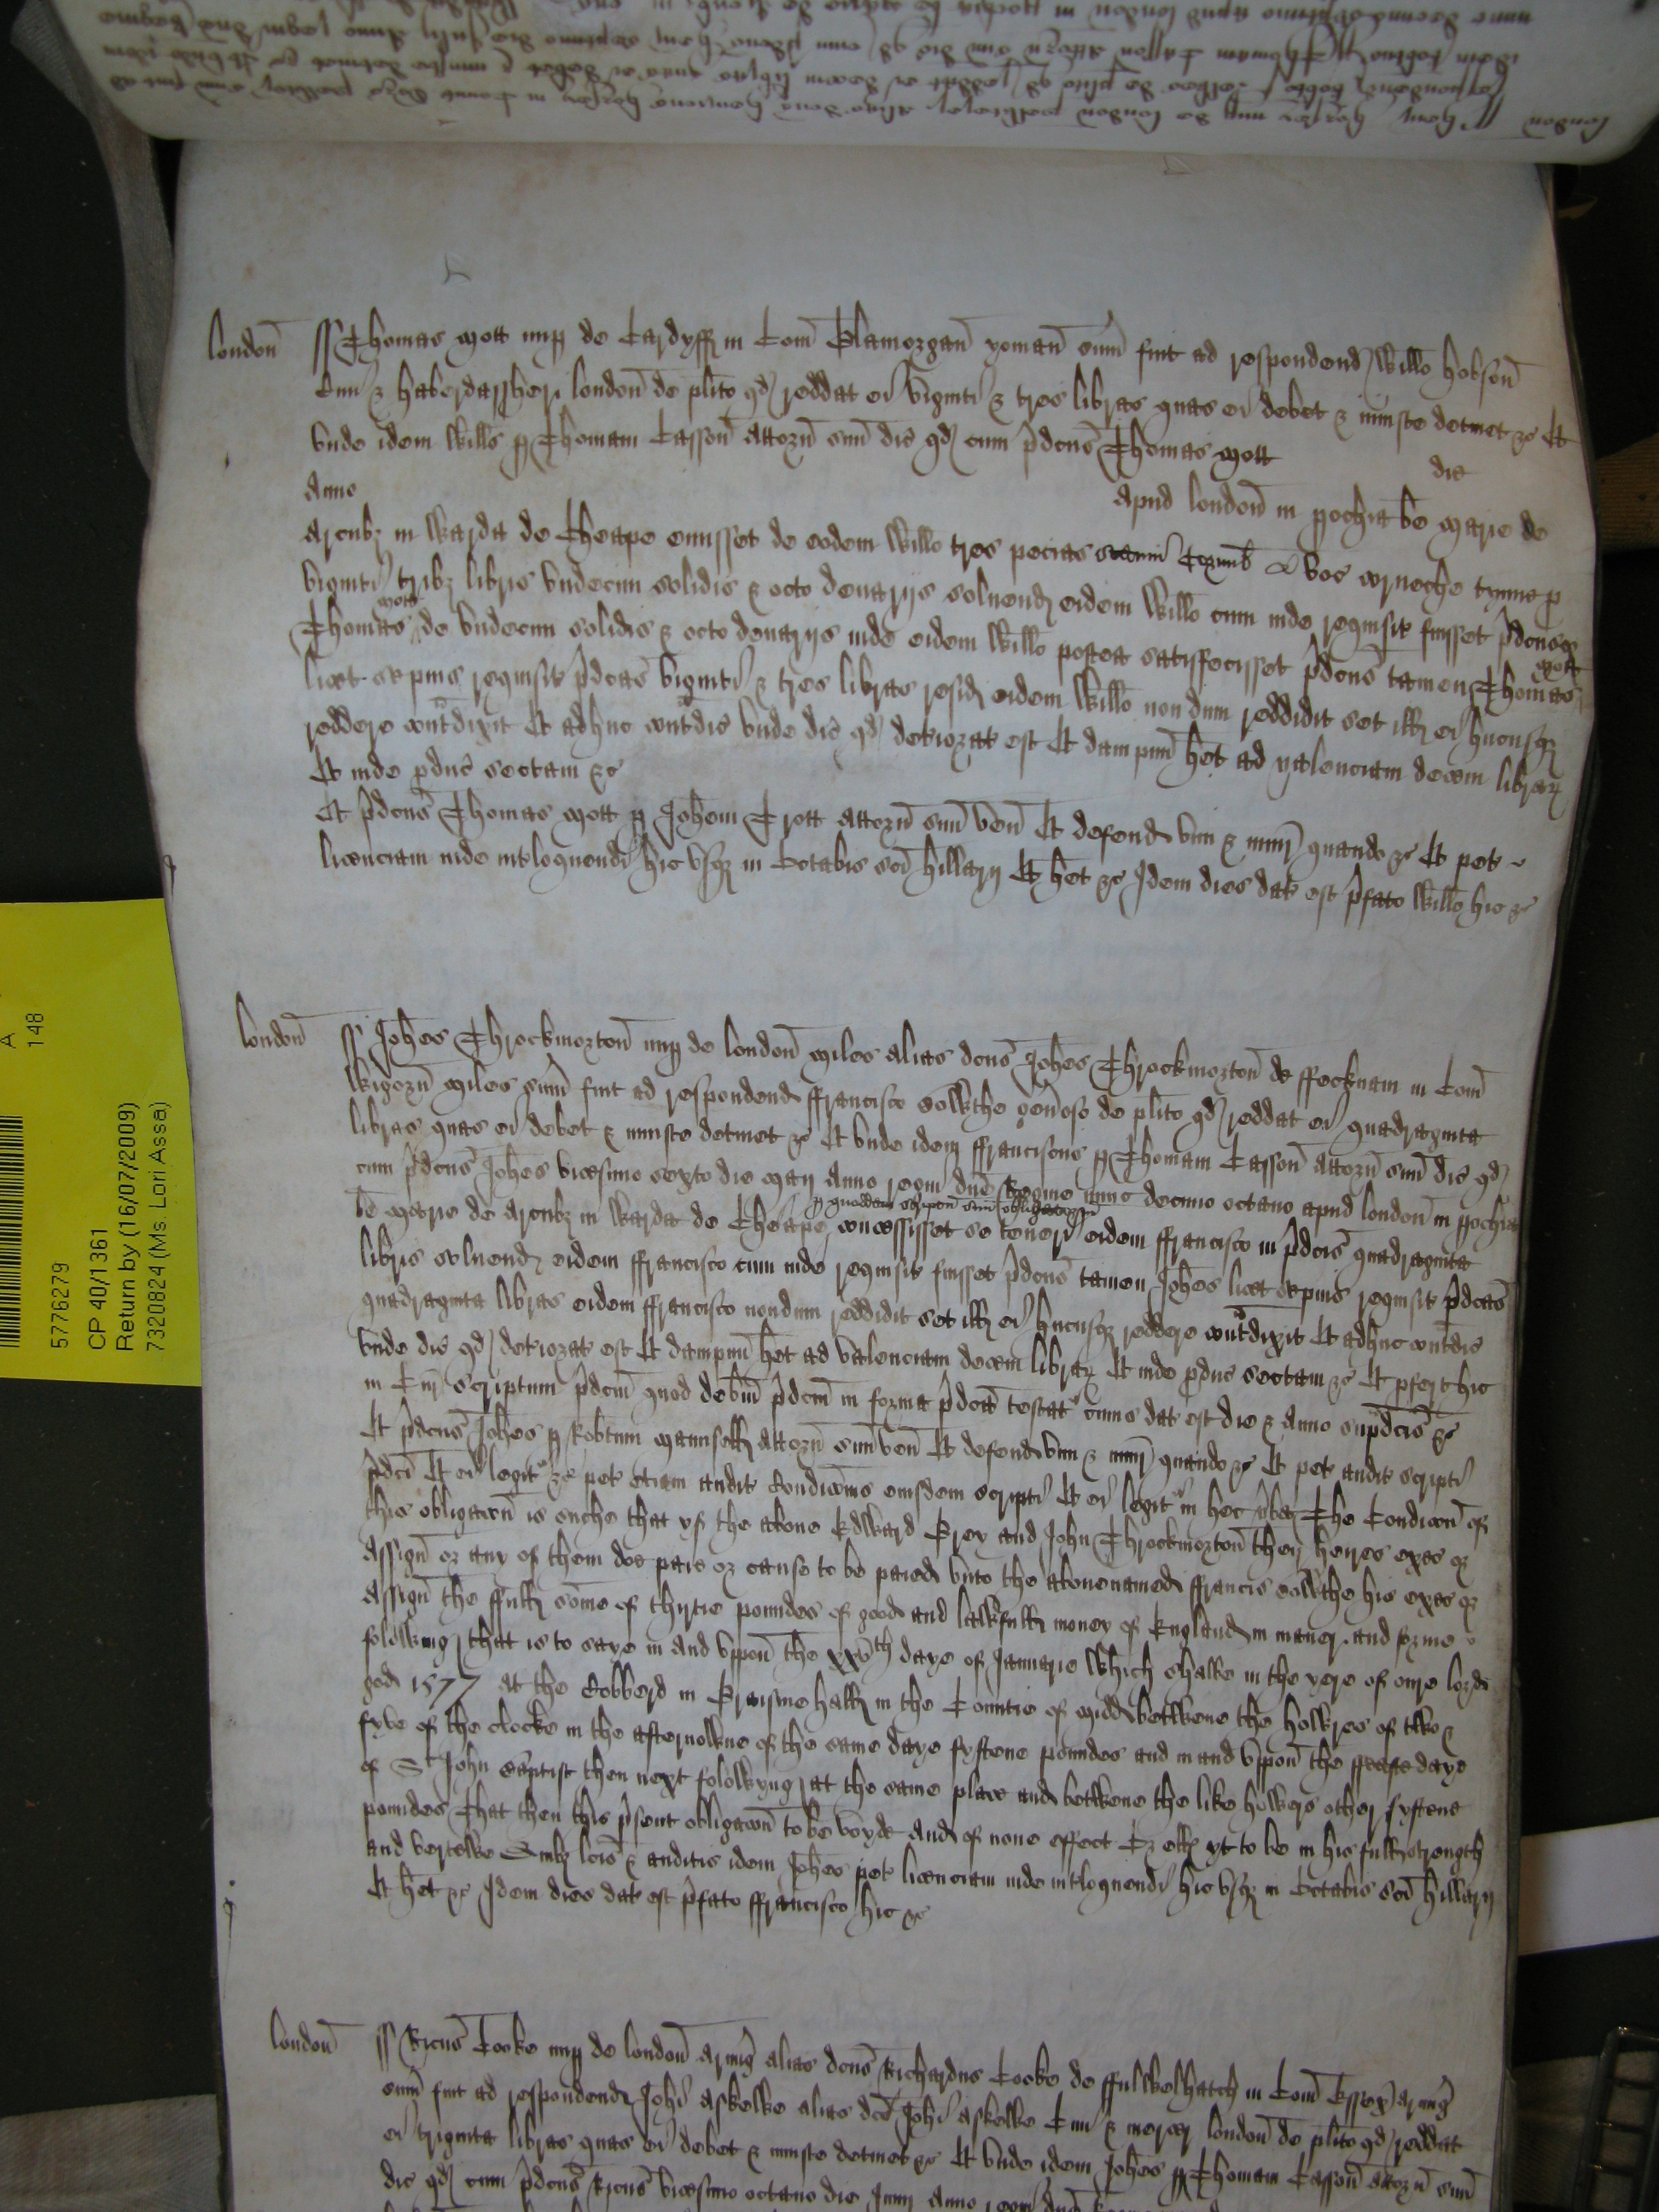 London ss Thomas Mott nup de Cardyff in Com Glamorgan yoman sum fuit ad respondend Willo Hobson
Civi & haberdassheri London de plito qd reddat ei viginti & tres libras quas ei debet & iniuste detinet &c Et
unde idem Wills p Thomam Casson Attorn suu dic qd cum pdcus Thomas Mott
die
Anno
apud London in pochia be Marie de
Arcubz in Warda de Cheape emisset de eodem Willo tres pecias
viginti tribz libris undecim solidis & octo denarijs solvend eidem Willo cum inde requisit fuisset pdcusqz
Thomas Mott de undecim solidis & octo denarijs inde eidem Willo postea satisfecisset pdcus tamen Thomas Mott
licet sepius requisit pdcas viginti & tres libras resid eidem Willo nondum reddidit set ill ei hucusqz
reddere contdixit Et adhuc contdic unde dic qd deteriorat est Et dampnu het ad valenciam decem librar
Et inde pduc sectam &c
Et pdcus Thomas Mott p Johem Trott Attorn suu ven Et defend vim & iniur quando &c Et pet
licenciam inde intloquendi hic usqz in Octabis sci Hillarij Et het &c Idem dies dat est pfato Willo hic &c
London ss Johes Throckmorton nup de London miles alias dcus Johes Throckmorton de ffecknam in Com
Wigorn miles sum fuit ad respondend ffrancisco Sowthe genoso de plito qd reddat ei quadraginta
libras quas ei debet & iniuste detinet &c Et unde idem ffranciscus p Thomam Casson Attorn suu dic qd
cum pdcus Johes vicesimo sexto die Maij Anno regni dne Regine nunc decimo octavo apud London in pochia
be Marie de Arcubz in Warda de Cheape p quoddam scriptum suu obligatorium concessisset se teneri eidem ffrancisco in pdcis quadraginta
libris solvend eidem ffrancisco cum inde requisit fuisset pdcus tamen Johes licet sepius requisit pdcas
quadraginta libras eidem ffrancisco nondum reddidit set ill ei hucusqz reddere contdixit Et adhuc contdic
unde dic qd deteriorat est Et dampnu het ad valenciam decem librar Et inde pduc sectam &c Et pfert hic
in Cur scriptum pdcm quod debitu pdcm in forma pdca testat cuius dat est die & Anno supdcis &c
Et pdcus Johes p Robtum Maunsell Attorn suu ven Et defend vim & iniur quando &c Et pet audit scripti
pdci Et ei legit &c pet etiam audit Condicois eiusdem scripti Et ei legit in hec vba The Condicon of
this obligacon is suche that yf the above Edward Grey and John Throckmorton their heires exes or
Assign or any of them doe paie or cause to be paied unto the abovenamed ffrancis Sowthe his exes or
Assign the ffull some of thyrtie poundes of good and lawfull money of England in maner and forme
folowing that is to saye in and uppon the xxvth daye of Januarie which shalbe in the yere of oure lord
god 1577 At the Cobberd in Graisine hall in the Countie of Midd betwene the howres of two &
fyve of the clocke in the afternowne of the same daye fyftene poundes and in and uppon the ffeaste daye
of St John Baptist then next folowyng at the same place and betwene the like howers other fyftene
poundes That then this psent obligacon to be voyde And of none effect Or ells yt to be in his full strength
and vertewe Quibz lcis & auditis idem Johes pet licenciam inde intloquendi hic usqz in Octabis sci Hillarij
Et het &c Idem dies dat est pfato ffrancisco hic &c
London ss Ricus Cooke nup de London Armig alias dcus Richardus Cooke de ffulwelhatch in Com Essex Armig
sum fuit ad respondend Johi Askewe alias dco Johi Askewe Civi & mercer London de plito qd reddat
ei triginta libras quas ei debet & iniuste detinet &c Et unde idem Johes p Thomam Casson Attorn suu
dic qd cum pdcus Ricus vicesimo octavo die Junij Anno regni dne
A
148
5776279
CP 40/1361
Return by (16/07/2009)
7320824 (Ms. Lori Assa)